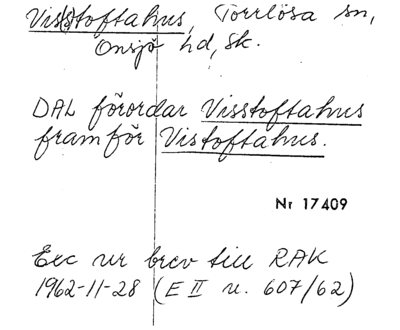 Vis(s)toftahus, Torrlösa sn,
Onsjö hd, Sk.
DAL förordar Visstoftahus
framför Vistoftahus.
Nr 17409
Exc ur brev till RAK
1962-11-28 (E II u. 607/62)